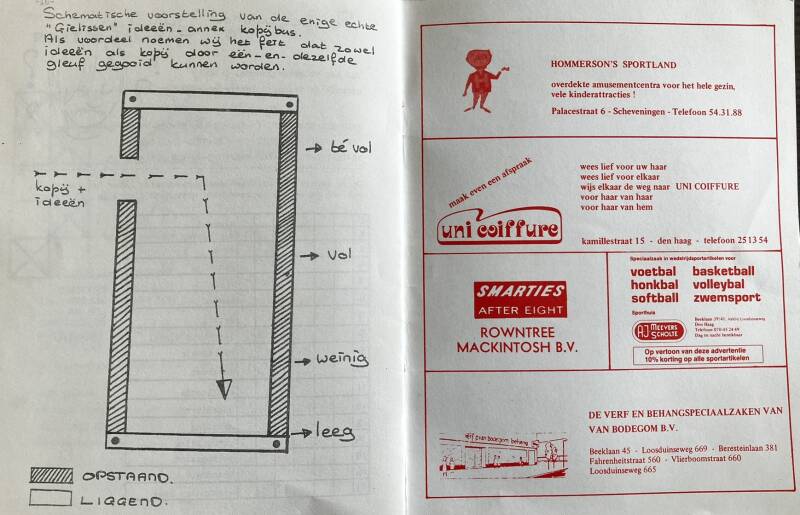 Schematische voorstelling van de enige echte
"Gielissen" ideeën-annex kopijbus.
Als voordeel noemen wij het feit dat zowel
ideeën als kopij door één-en-dezelfde
gleuf gegooid kunnen worden.
té vol
kopij +
ideeën
vol
weinig
leeg
OPSTAAND.
LIGGEND.
HOMMERSON'S SPORTLAND
overdekte amusementcentra voor het hele gezin,
vele kinderattracties !
Palacestraat 6 - Scheveningen - Telefoon 54.31.88
maak even een afspraak
uni coiffure
wees lief voor uw haar
wees lief voor elkaar
wijs elkaar de weg naar UNI COIFFURE
voor haar van haar
voor haar van hem
kamillestraat 15 - den haag - telefoon 25 13 54
SMARTIES
AFTER EIGHT
ROWNTREE
MACKINTOSH B.V.
Speciaalzaak in wedstrijdsportartikelen voor
voetbal basketball
honkbal volleybal
softball zwemsport
Sporthuis
AJ MEEVERS
SCHOLTE
Beeklaan 39/41, Loosduinseweg
Den Haag
Telefoon 070-45 24 49
Op vertoon van deze advertentie
10% korting op alle sportartikelen
verf van bodegom behang
DE VERF EN BEHANGSPECIAALZAKEN VAN
VAN BODEGOM B.V.
Beeklaan 45 - Loosduinseweg 669 - Beresteinlaan 381
Fahrenheitstraat 560 - Vlierboomstraat 660
Loosduinseweg 665